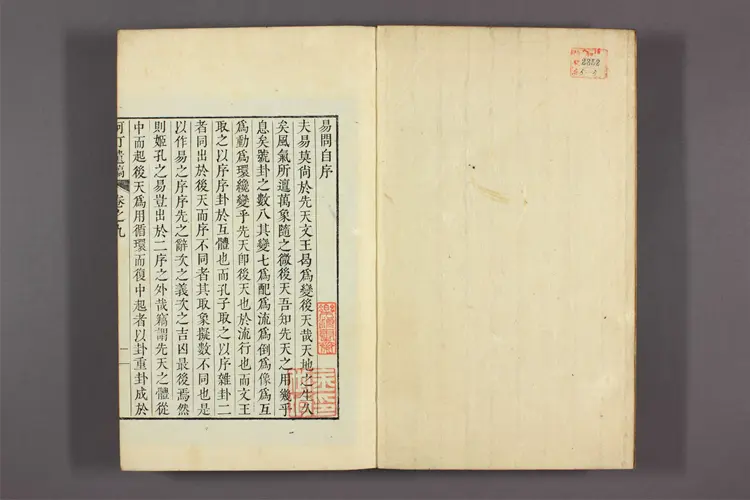 易問自序
夫易莫尙於先天文王曷爲變後天哉天地之生久
矣風氣所還萬象隨之微後天吾知先天之用幾乎
息矣號卦之數八其變七爲配爲流爲倒爲像爲互
爲動爲環纔變乎先天卽後天也於流行也而文王
取之以序序卦於互體也而孔子取之以序雜卦二
者同出於後天而序不同者其取象擬數不同也是
以作易之序序先之辭次之義次之吉凶最後焉然
則姬孔之易豈出於二序之外哉竊謂先天之體從
中而起後天爲用循環而復中起者以卦重卦成於
遺稿 卷之九 一
2828